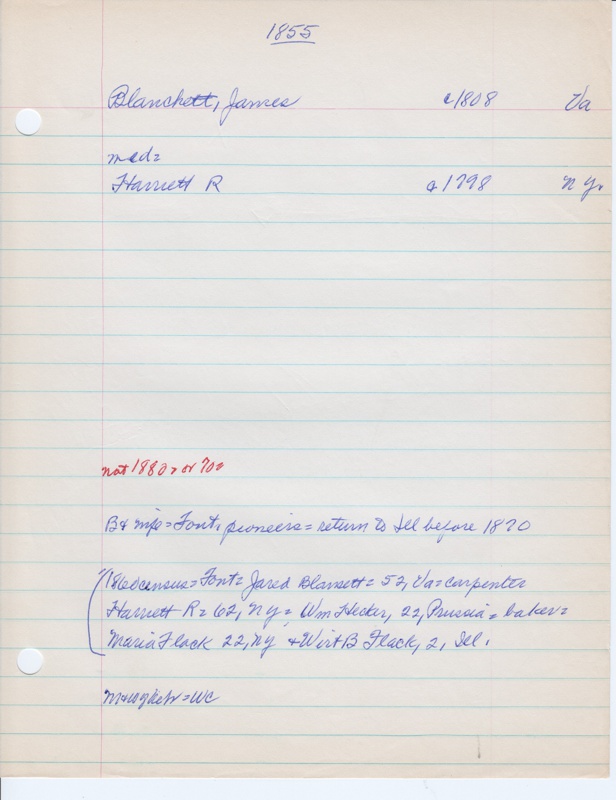 1855
Blanchett, James c1808 Va
med=
Harriett R c1798 N Y.
not 1880= or 70=
B+ mfo = Font. pioneers = return to Ill before 1870
1860 census = Font = Jared Blansett = 52, Va = carpenter
Harriett R = 62, NY = Wm Hecker, 22, Prussia = baker =
Maria Flack 22, NY + Wirt B Flack, 2, Ill.
= WC